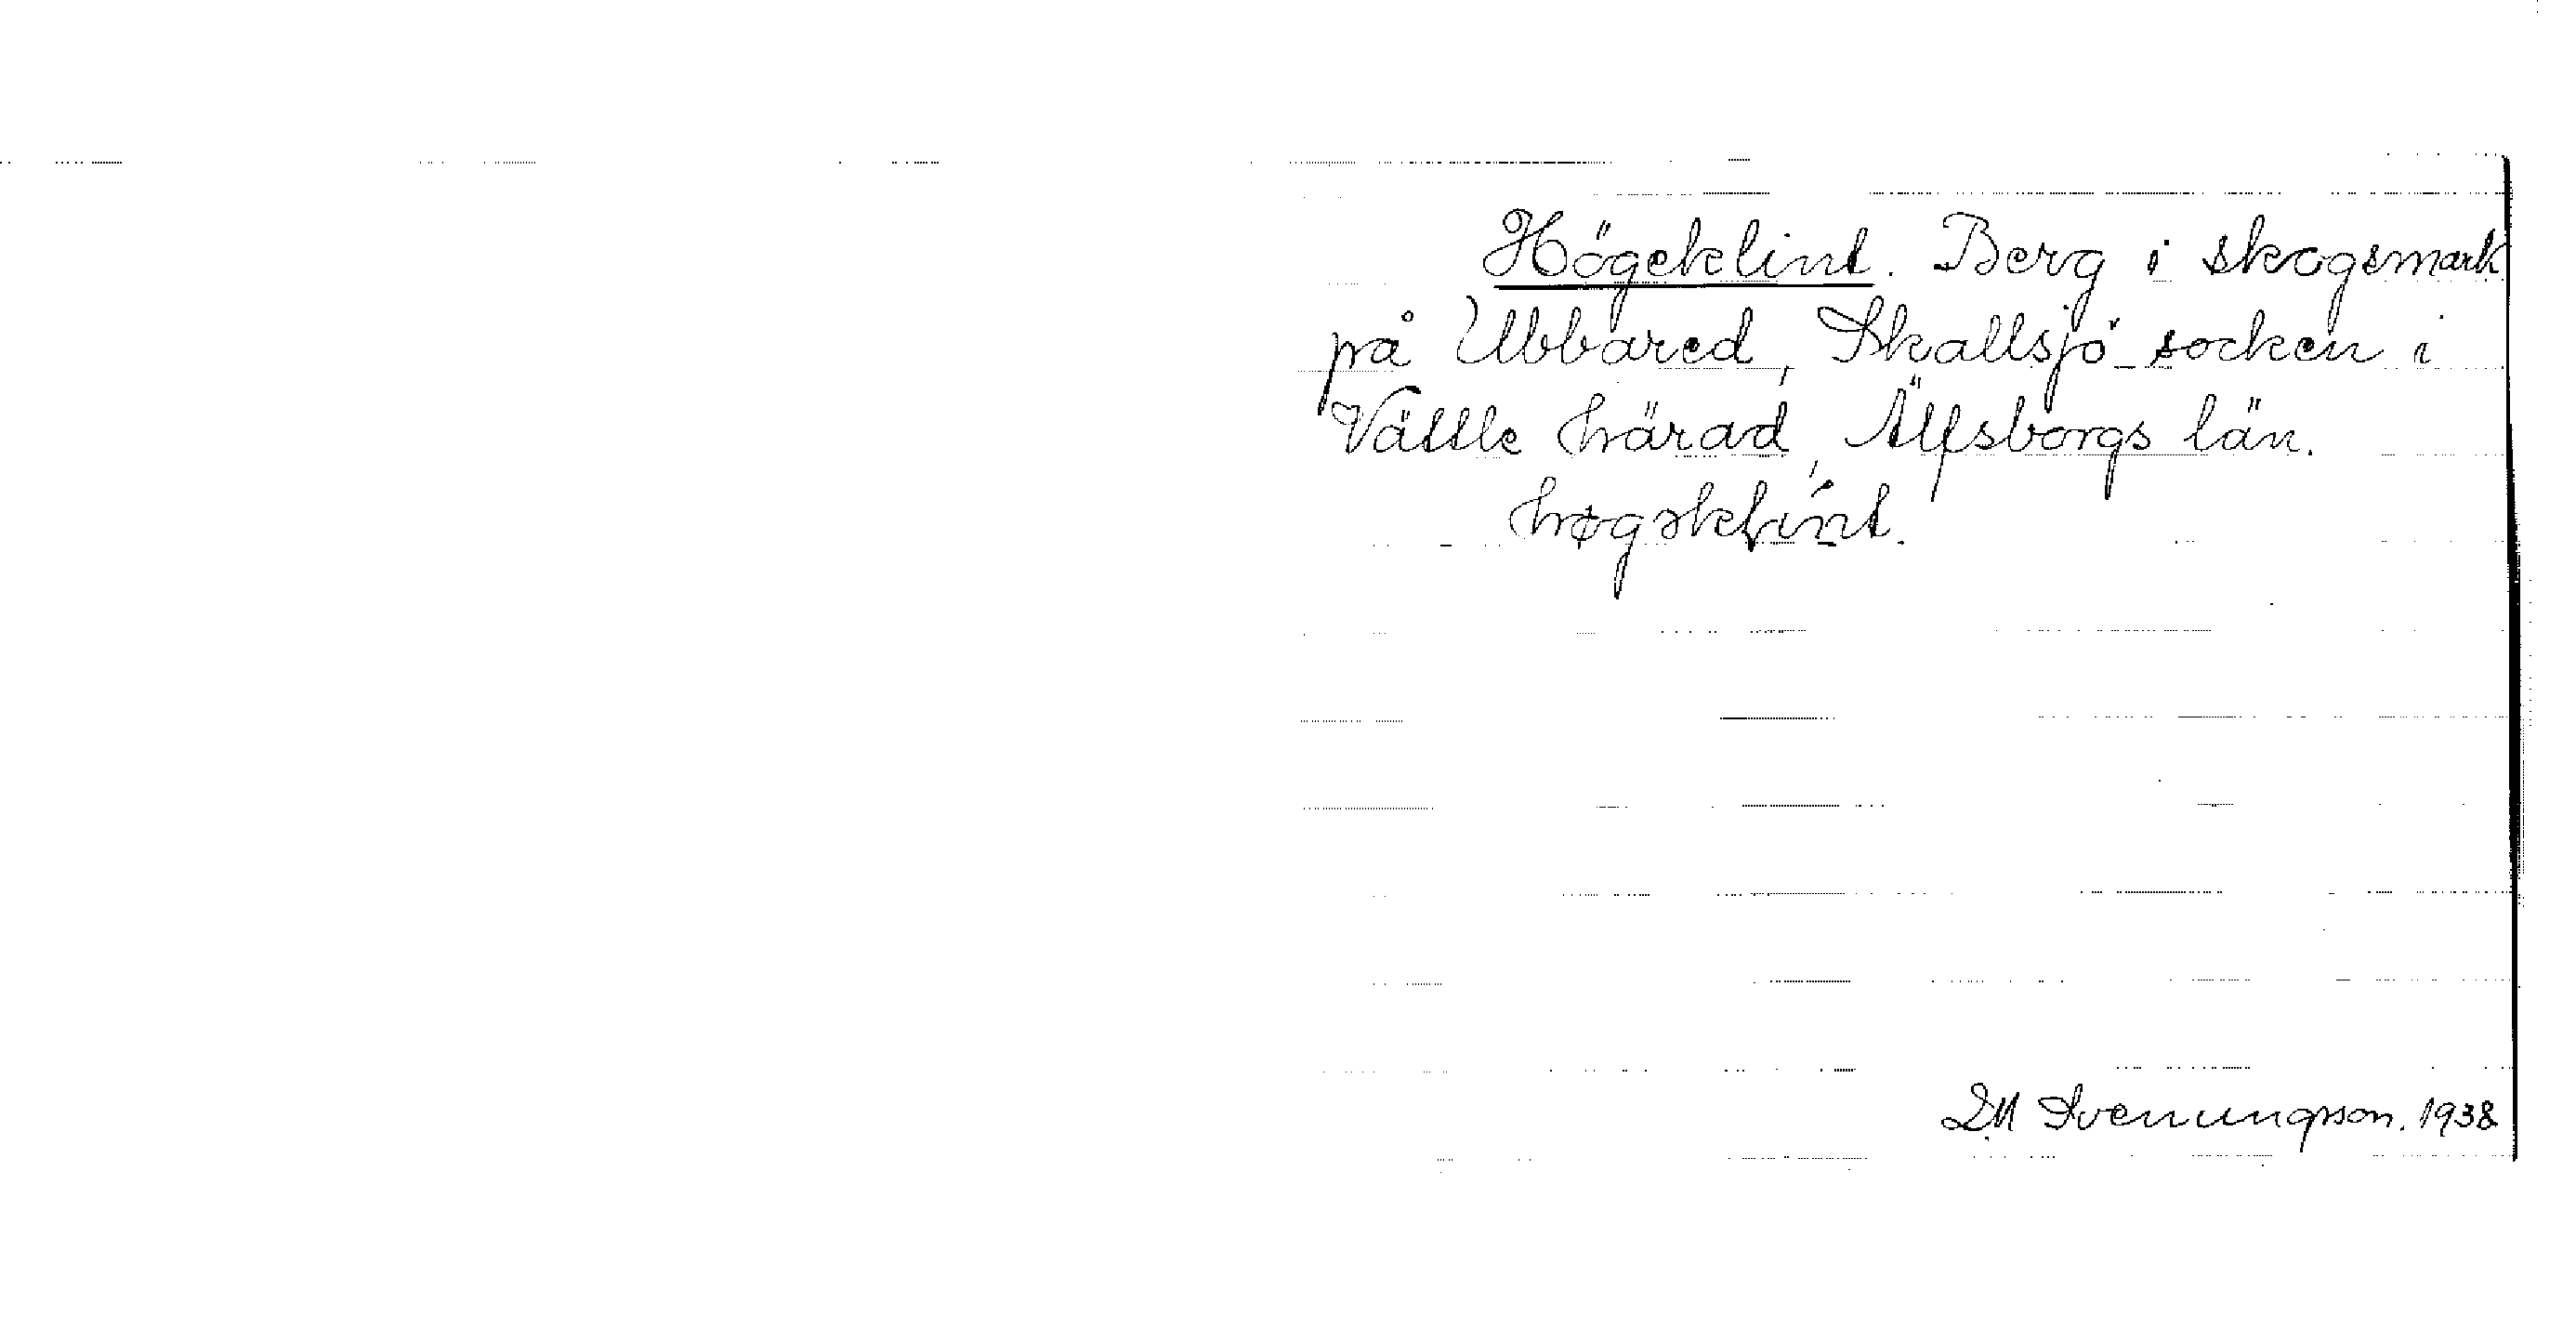 Högeklint. Berg i skogsmark
på Ubbared, Skallsjö socken i
Vättle härad, Älfsborgs län.
høgəklínt.
D.M Svenungsson. 1938